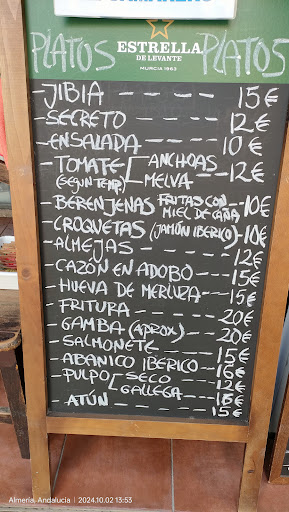 PLATOS ESTRELLA PLATOS
DE LEVANTE
MURCIA 1963
-JIBIA - - - - - - 15€
-SECRETO - - - - - 12€
-ENSALADA - - - - 10€
-TOMATE [ANCHOAS
(SEGUN TEMP.) [MELVA - - 12€
-BERENJENAS FRITAS CON MIEL DE CAÑA -10€
-CROQUETAS (JAMÓN IBERICO) -10€
-ALMEJAS - - - - - 12€
-CAZÓN EN ADOBO - - - 15€
-HUEVA DE MERLUZA - - 15€
-FRITURA - - - - - 20€
-GAMBA (APROX.) - - - 20€
-SALMONETE - - - - 15€
-ABANICO IBERICO - - 16€
-PULPO [SECO - - - 12€
[GALLEGA - - - 18€
-ATÚN - - - - - 15€
Almería, Andalucía | 2024.10.02 13:53